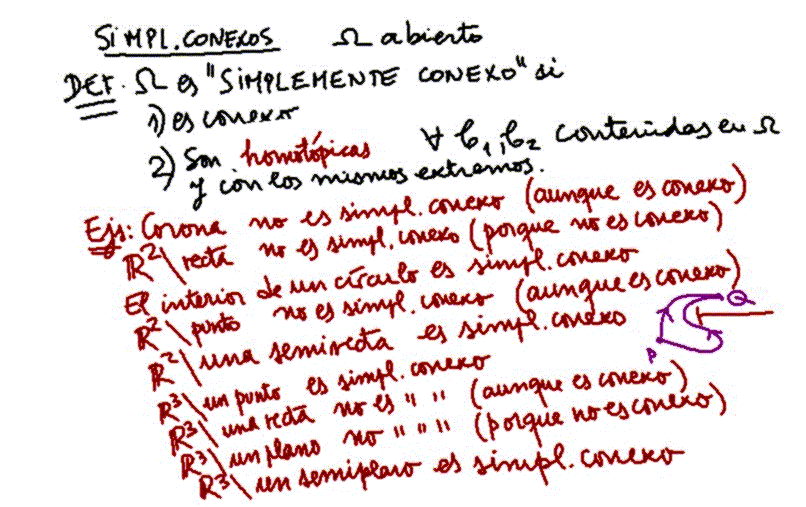 SIMPL. CONEXOS Ω abierto
DEF. Ω es "SIMPLEMENTE CONEXO" si
1) es conexo
2) Son homotópicas ∀ C₁, C₂ contenidas en Ω
y con los mismos extremos.
Ejs: Corona no es simpl. conexo (aunque es conexo)
ℝ²\ recta no es simpl. conexo (porque no es conexo)
El interior de un círculo es simpl. conexo
ℝ²\ punto no es simpl. conexo (aunque es conexo)
ℝ²\ una semirecta es simpl. conexo
ℝ³\ un punto es simpl. conexo
ℝ³\ una recta no es " " (aunque es conexo)
ℝ³\ un plano no " " " (porque no es conexo)
ℝ³\ un semiplano es simpl. conexo
P
Q